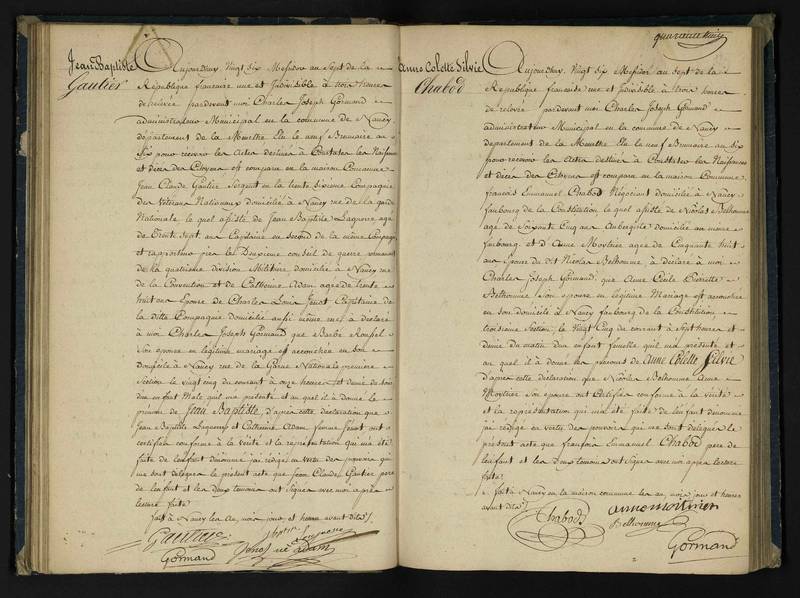 Jean Baptiste
Gautier
Aujourdhuy Vingt Six Messidor an Sept de la
République française une et Indivisible à trois heures
de relevée pardevant moi Charles Joseph Gormand
administrateur Municipal en la commune de Nancy
département de la Meurthe Elu le neuf Brumaire an
Six pour recevoir les Actes destinés à Constater les Naissances
et décès des Citoyens est comparu en la maison Commune
Jean Claude Gautier Sergent en la trente sixieme Compagnie
des Vétérans Nationaux domicilié à Nancy rue de la garde
Nationale, le quel assisté de Jean Baptiste agé
de Trente sept ans Capitaine en second de la même Compagnie
et rapporteur près le Deuxieme conseil de guerre
de la quatrieme division Militaire, domicilié a Nancy rue
de la Convention et de Catherine Adam agée de trente
huit ans Epouse de Charles Louis Capitaine de
la ditte Compagnie domicilié aussi même rue, a déclaré
à moi Charles Joseph Gormand que Barbe Roussel
Son épouse en légitime mariage est accouchée en son
domicile à Nancy rue de la Garde Nationale premiere
Section le vingt cinq du courant à onze heures et demie du soir
d'un enfant Male qu'il m'a présenté et au quel il à donné le
prénom de Jean Baptiste, d'après cette déclaration que
Jean Baptiste et Catherine Adam femme ont
certifiée conforme à la vérité et la représentation qui m'a été
faite de l'enfant dénommé j'ai rédigé en vertu des pouvoirs qui
me sont délégués le présent acte que Jean Claude Gautier pere
de l'enfant et les deux temoins ont Signés avec moi après
lecture faite
fait à Nancy les an, mois jour et heure avant dits
Gautier
adam
Gormand
quarante
Anne Colette Silvie
Chabod
Aujourdhuy, Vingt six Messidor an sept de la
République française une et indivisible à trois heures
de relevée pardevant moi Charles Joseph Gormand
administrateur Municipal en la commune de Nancy
département de la Meurthe Elu le neuf Brumaire an six
pour recevoir les Actes destinés à Constater les Naissances
et décès des Citoyens est comparu en la maison Commune
françois Emmanuel Chabod Négociant domicilié à Nancy
faubourg de la Constitution le quel assisté de Nicolas Belhomme
agé de Soixante Cinq ans Aubergiste domicilié au même
faubourg et d'Anne agée de Cinquante huit
ans Epouse du dit Nicolas Belhomme, à déclaré à moi
Charles Joseph Gormand que Anne Cécile Pierrette
Belhomme Son épouse en légitime Mariage est accouchée
en son domicile à Nancy faubourg de la Constitution
troisieme Section, le Vingt Cinq du courant à Sept heures et
demie du matin d'un enfant femelle qu'il m'a présenté et
au quel il à donné les prénoms de Anne Colette Silvie
D'après cette déclaration que Nicolas Belhomme Anne
Son épouse ont Certifiée conforme à la Vérité
et la représentation qui m'a été faite de l'enfant dénommé
j'ai rédigé en vertu des pouvoirs qui me sont délégués le
présent acte que françois Emmanuel Chabod pere de
l'enfant et les Deux temoins ont Signés avec moi après lecture
faite
fait à Nancy en la maison commune les an, mois jour et heures
avant dits
Chabod
anne
Belhomme
Gormand